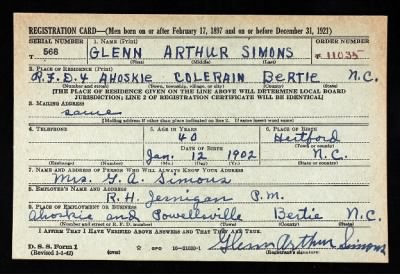 REGISTRATION CARD—(Men born on or after February 17, 1897 and on or before December 31, 1921)
SERIAL NUMBER 1. NAME (Print) ORDER NUMBER
568 GLENN ARTHUR SIMONS 11035
(First) (Middle) (Last)
2. PLACE OF RESIDENCE (Print)
R.F.D.4 AHOSKIE COLERAIN BERTIE N.C.
(Number and street) (Town, township, village, or city) (County) (State)
[THE PLACE OF RESIDENCE GIVEN ON THE LINE ABOVE WILL DETERMINE LOCAL BOARD
JURISDICTION; LINE 2 OF REGISTRATION CERTIFICATE WILL BE IDENTICAL]
3. MAILING ADDRESS
same
[Mailing address if other than place indicated on line 2. If same insert word same]
4. TELEPHONE 5. AGE IN YEARS 6. PLACE OF BIRTH
40 Hertford
DATE OF BIRTH (Town or county)
Jan. 12 1902 N.C.
(Exchange) (Number) (Mo.) (Day) (Yr.) (State or country)
7. NAME AND ADDRESS OF PERSON WHO WILL ALWAYS KNOW YOUR ADDRESS
Mrs. G. A. Simons
8. EMPLOYER'S NAME AND ADDRESS
R. H. Jernigan P.M.
9. PLACE OF EMPLOYMENT OR BUSINESS
Ahoskie and Powellsville Bertie N.C.
(Number and street or R. F. D. number) (Town) (County) (State)
I AFFIRM THAT I HAVE VERIFIED ABOVE ANSWERS AND THAT THEY ARE TRUE.
D. S. S. Form 1 GPO
(Revised 1-1-42) (over) Glenn Arthur Simons